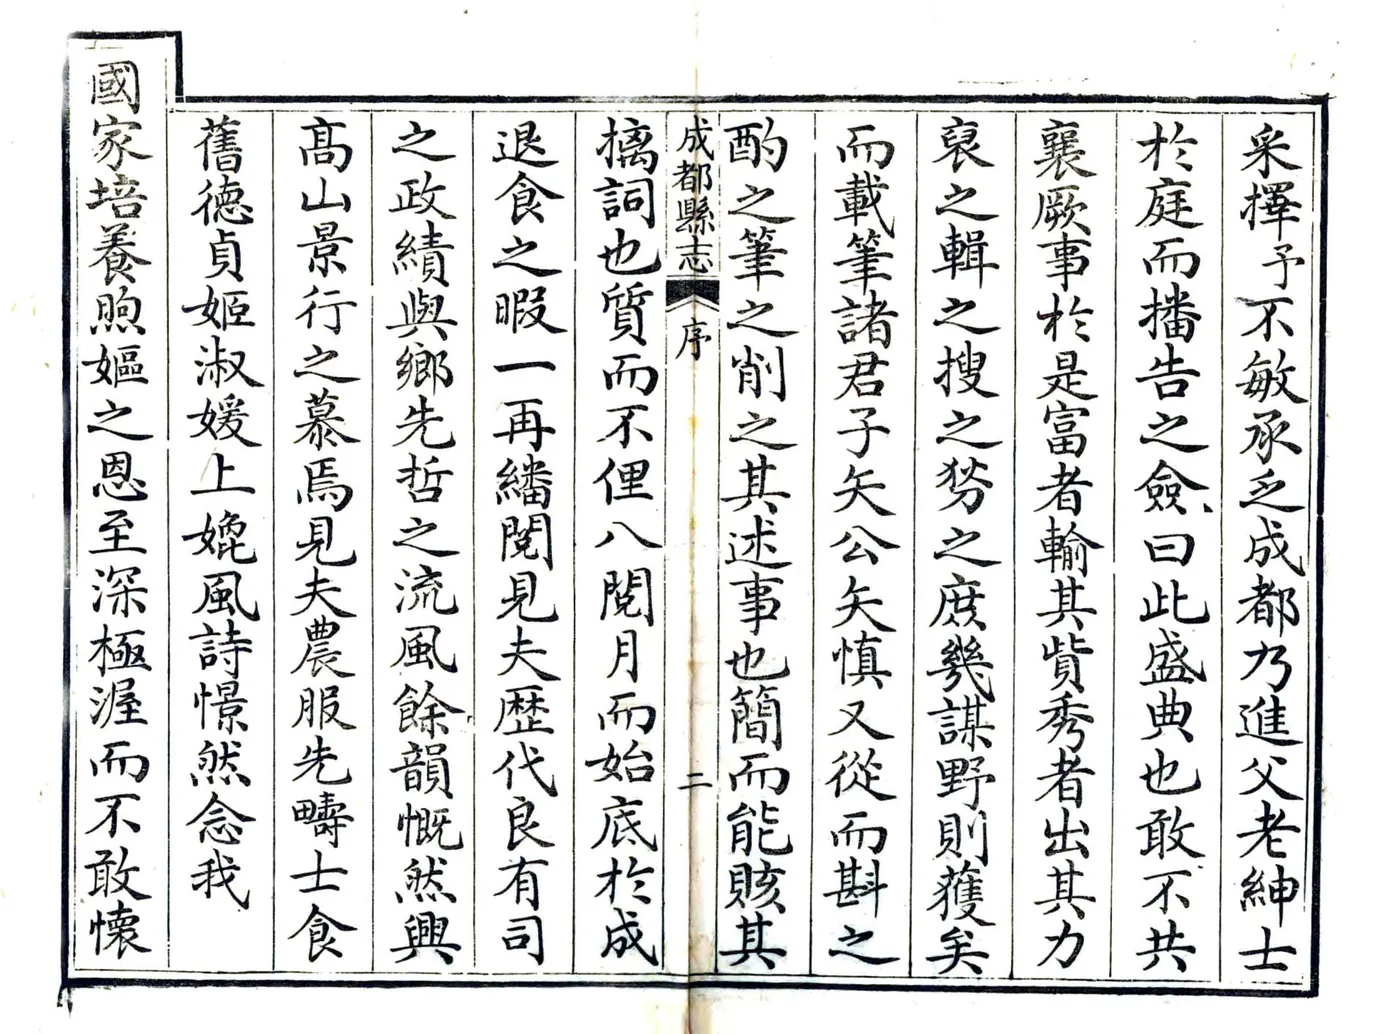 采擇予不敏承乏成都乃進父老紳士
於庭而播告之僉曰此盛典也敢不共
襄厥事於是富者輸其貲秀者出其力
裒之輯之搜之㧾之庶幾謀野則獲矣
而載筆諸君子矢公矢慎又從而斟之
酌之筆之削之其述事也簡而能賅其
成都縣志
序
二
摛詞也質而不俚八閱月而始底於成
退食之暇一再繙閱見夫歷代良有司
之政績與鄉先哲之流風餘韻慨然興
高山景行之慕焉見夫農服先疇士食
舊德貞姬淑媛上媲風詩憬然念我
國家培養煦嫗之恩至深極渥而不敢懷